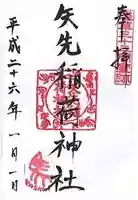 奉拝
矢先稲荷神社
平成二十六年一月一日